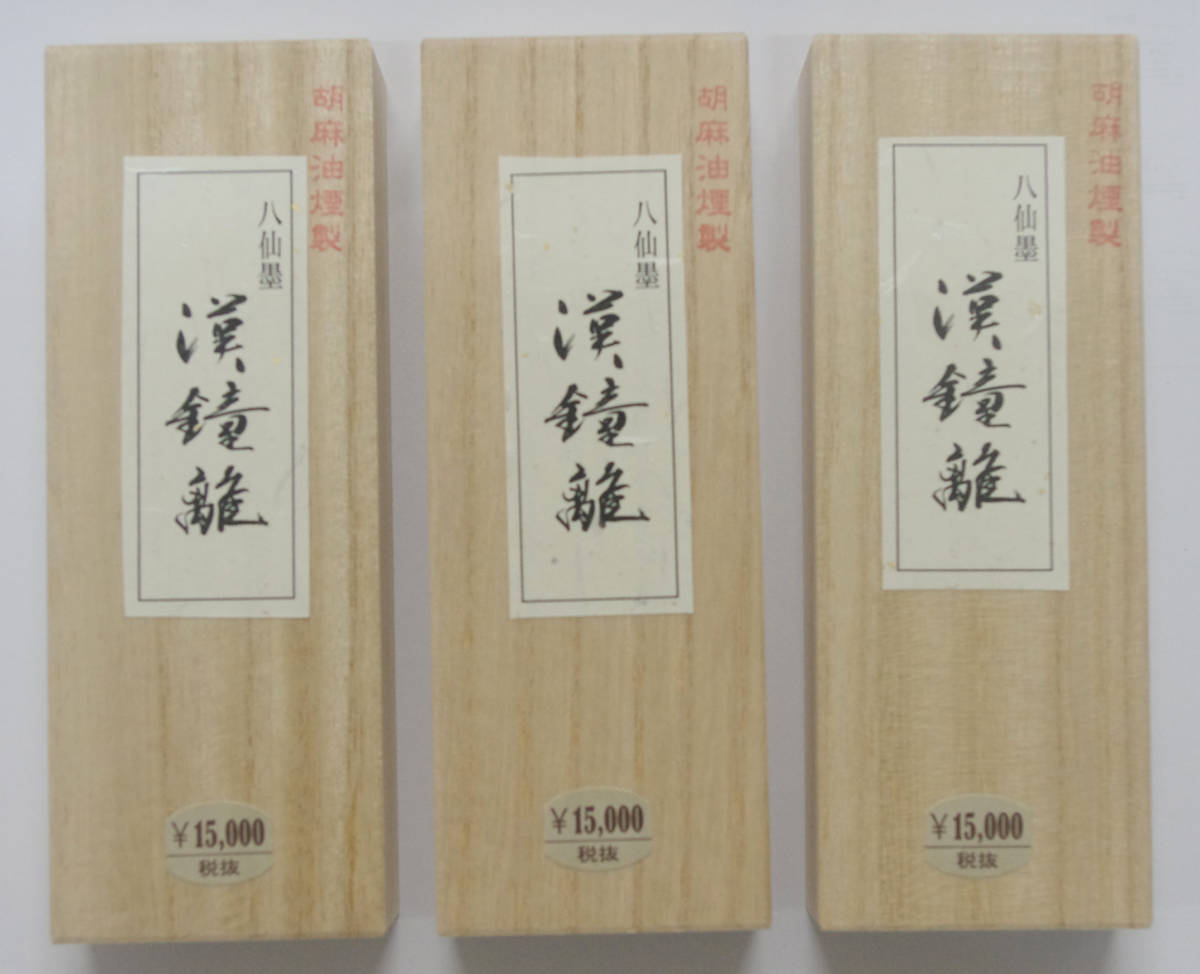 胡麻油煙製
八仙墨
漢鐘離
¥15,000
税抜
胡麻油煙製
八仙墨
漢鐘離
¥15,000
税抜
胡麻油煙製
八仙墨
漢鐘離
¥15,000
税抜